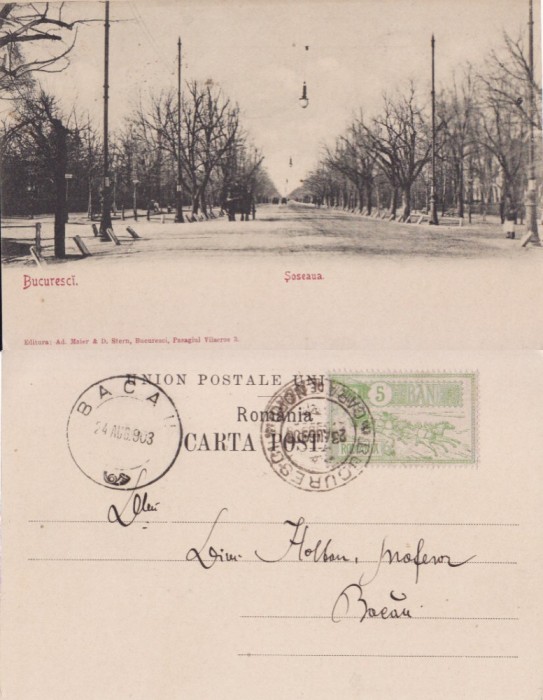 Bucurescĭ. Șoseaua.
Editura: Ad. Maier & D. Stern, Bucuresci, Pasagiul Vilacros 3.
UNION POSTALE UNI
România
CARTA POST
5 BANI
BACAU
24 AUG. 903
BUCURESCI
GARA DE NORD
23 AUG 903
Dlui
Dim. Holban, profesor
Bacău